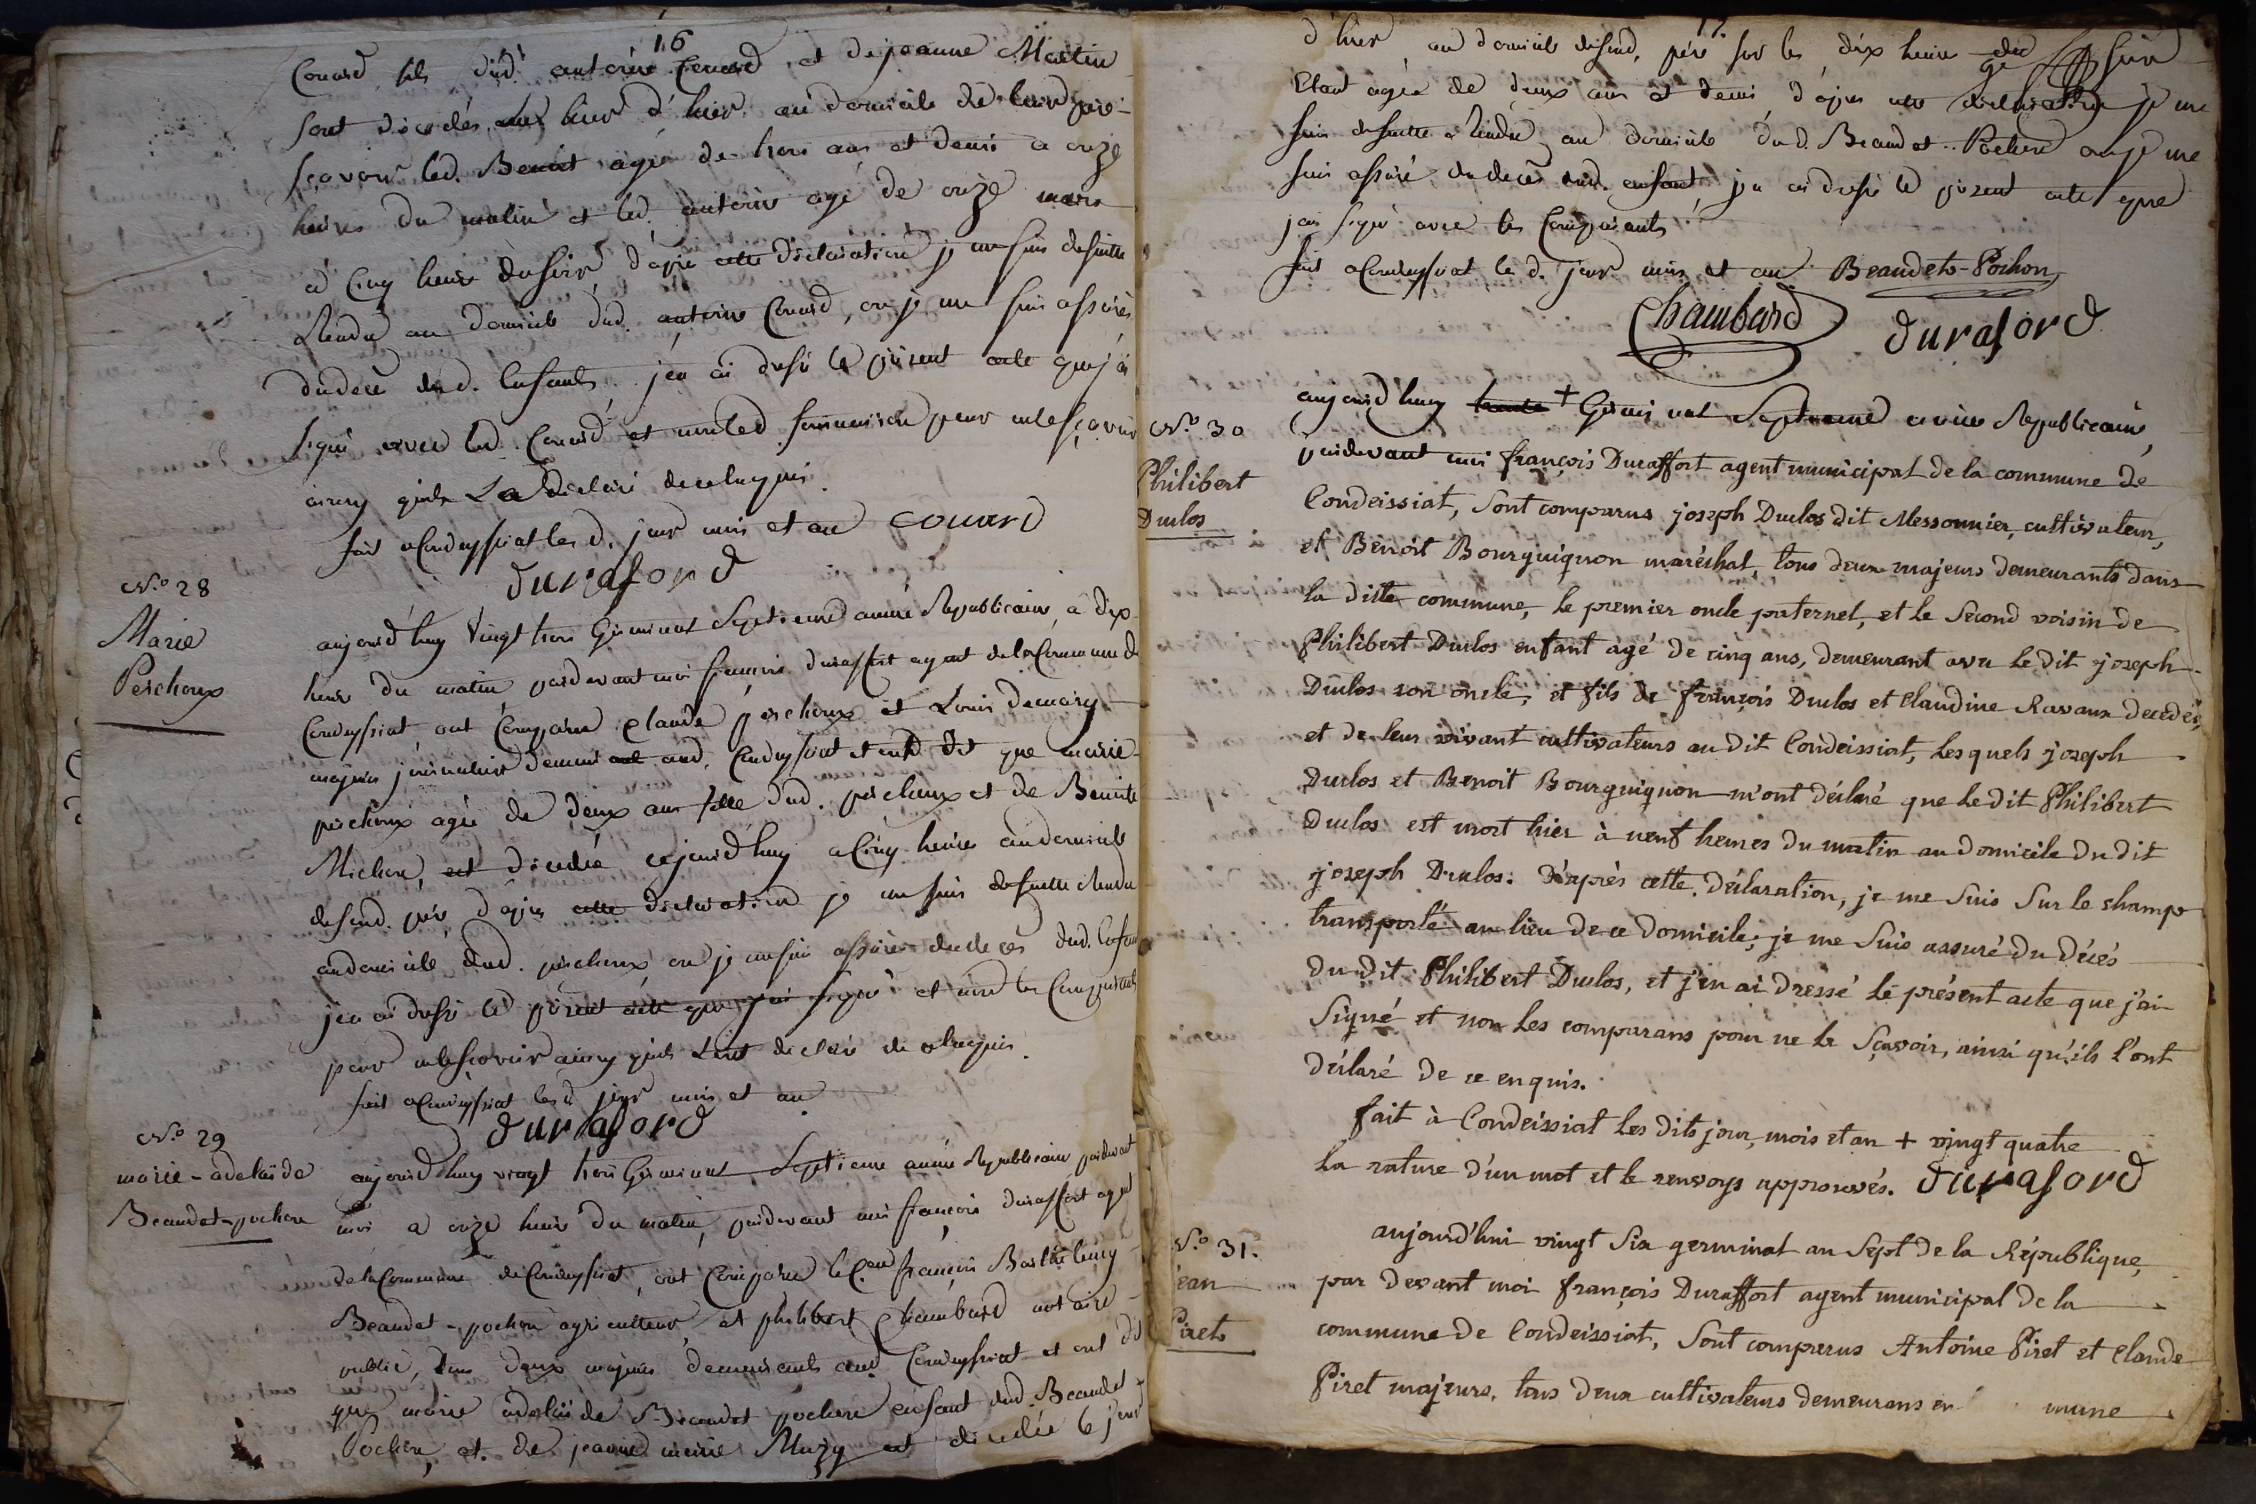 16
Couard fils dud. antoine Couard et de jeanne Martin
sont décédés d'hier au domicile de leurd. père
sçavoir led. Benoit agé de trois ans et demi a onze
heures du matin et led. antoine agé de onze mois
a Cinq heure du soir, d'apré cette déclaration je me suis de suitte
Rendu au domicile dud. antoine Couard, ou je me suis assurés
du decé desd. Enfants j'en ai dressé le présent acte que j'ai
signé avec led. Couard et non led. pour ne le sçavoir
ainsy qu'il La déclaré de ce enquis
fait a Condeyssiat les d. jour mois et an Couard
duraford
N.o 28
Marie
Perchoux
aujourd'huy vingt trois Germinal Septieme année Republicaine, a dix
heure du matin pardevant moi françois duraffort agent de la Commune de
Condeyssiat, ont Comparu claude perchoux et Louis demary
majeurs journaliers demeurant aud. Condeyssiat et ont dit que marie
perchoux agée de deux ans fille dud. perchoux et de Benoite
Michon, est décédée cejourd'huy a Cinq heures au domicile
de sond. père, d'apres cette déclaration je me suis de suitte Rendu
au domicile dud. perchoux ou je me suis assuré du decès dud. Enfant
j'en ai dressé le présent acte que j'ai signé et non les Comparants
pour ne le sçavoir ainsy qu'ils L'ont déclaré de ce enquis.
fait a Condeyssiat les d. jour mois et an
duraford
N.o 29
marie-adelaïde
Beaudet-pochon
aujourd'huy vingt trois Germinal Septieme année Republicaine pardevant
moi a onze heure du matin, pardevant moi françois duraffort agent
de la Commune de Condeyssiat, ont Comparu le C.en françois Barthelemy
Beaudet-pochon agriculteur, et philibert Chambard notaire
public, tous deux majeurs demeurants aud. Condeyssiat et ont dit
que marie adelaïde Beaudet pochon enfant dud. Beaudet
Pochon, et de jeanne marie Muzy est décédée le jour
17.
d'hier au domicile de sond. père sur les dix heure du soir
Etant agée de deux ans et demi, d'apres cette déclaration je me
suis de suitte Rendu au domicile dud. Beaudet-Pochon ou je me
suis assuré du decès dud. enfant j'en ai dressé le présent acte que
j'ai signé avec les Comparants
fait a Condeyssiat le d. jour mois et an Beaudet-Pochon
Chambard duraford
N.o 30
Philibert
Duclos
aujourd'huy trente + Germinal Septieme année Republicaine,
pardevant moi françois Duraffort agent municipal de la commune de
Condeissiat, Sont comparus joseph Duclos dit Messonnier, cultivateur,
et Benoit Bourguignon maréchal, tous deux majeurs demeurants dans
la dite commune, le premier oncle paternel, et le Second voisin de
Philibert Duclos enfant agé de cinq ans, demeurant avec le dit joseph
Duclos son oncle, et fils de françois Duclos et Claudine Ravaux decedés,
et de leur vivant cultivateurs au dit Condeissiat, Lesquels joseph
Duclos et Benoit Bourguignon m'ont déclaré que le dit Philibert
Duclos est mort hier à neuf heures du matin au domicile du dit
joseph Duclos. D'après cette déclaration, je me Suis Sur le champ
transporté au lieu de ce domicile, je me Suis assuré du décés
du dit Philibert Duclos, et j'en ai dressé le présent acte que j'ai
Signé et non Les comparans pour ne le Sçavoir, ainsi qu'ils l'ont
déclaré de ce enquis.
fait à Condeissiat Les dits jour, mois et an + vingt quatre
La rature d'un mot et le renvoys approuvés. duraford
N.o 31.
jean
Piret
aujourd'hui vingt Six germinal an Sept de la République,
par devant moi françois Duraffort agent municipal de la
commune de Condeissiat, Sont comparus Antoine Piret et Claude
Piret majeurs, tous deux cultivateurs demeurans en mune